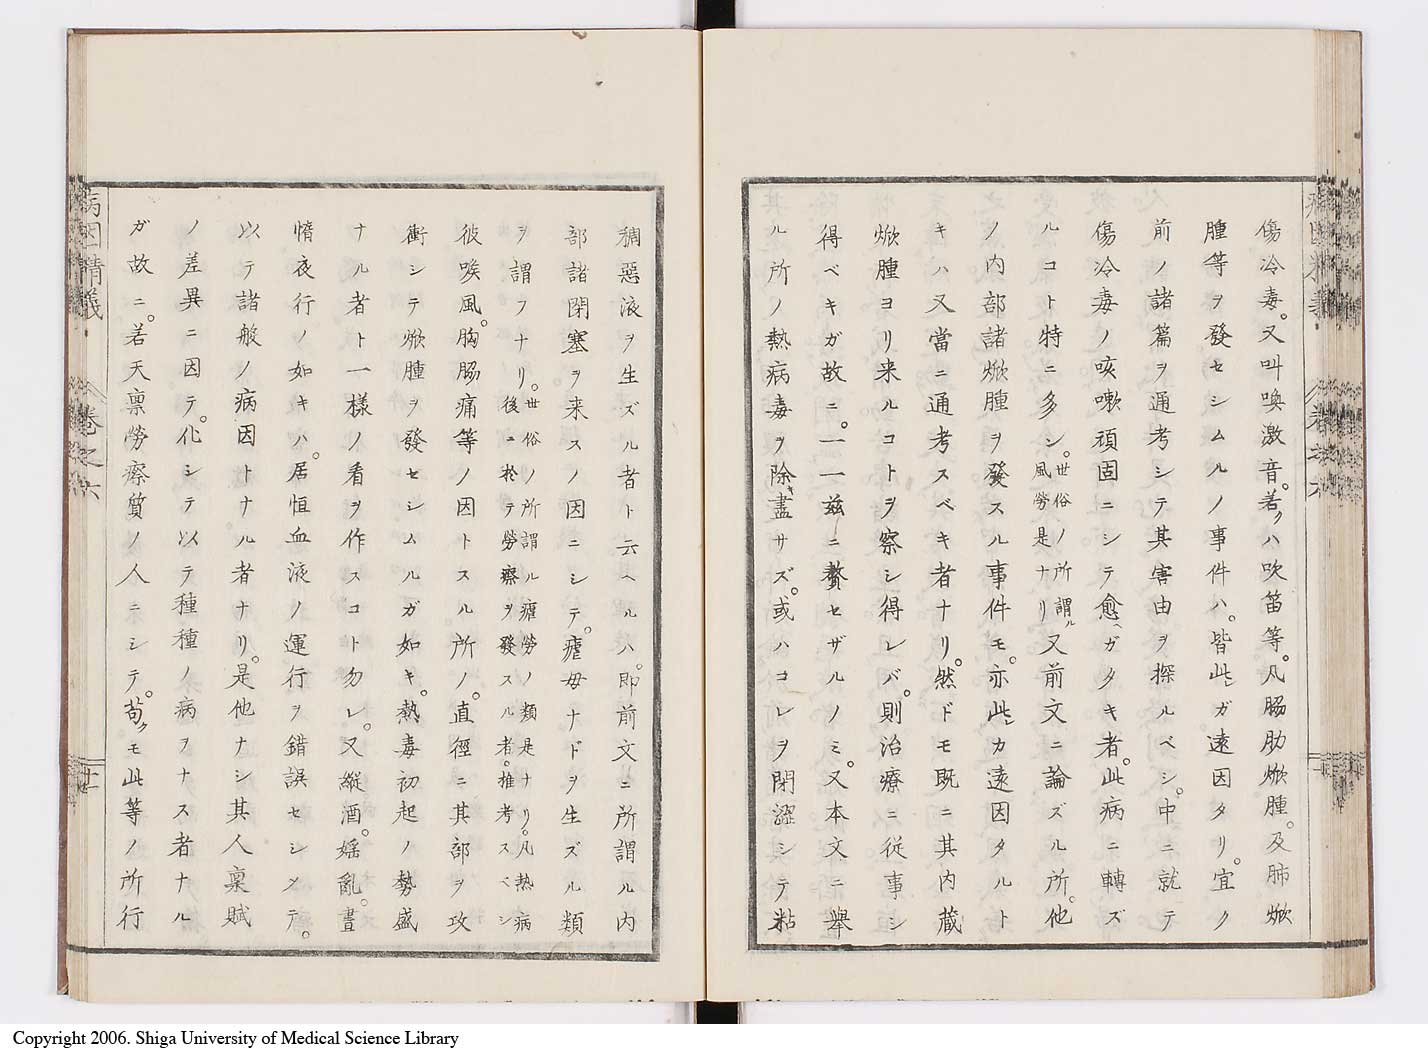 傷冷毒。又叫喚激音。若クハ吹笛等。凡脇肋焮腫。及肺焮
腫等ヲ發セシムルノ事件ハ。皆此レガ遠因タリ。宜ク
前ノ諸篇ヲ通考シテ其害由ヲ探ルベシ。中ニ就テ
傷冷毒ノ咳嗽頑固ニシテ愈ヘガタキ者。此病ニ轉ズ
ルコト特ニ多シ。世俗ノ所謂ル風勞是ナリ又前文ニ論ズル所。他
ノ内部諸焮腫ヲ發スル事件モ。亦此レカ遠因タルト
キハ又當ニ通考スベキ者ナリ。然ドモ既ニ其内藏
焮腫ヨリ来ルコトヲ察シ得レバ。則治療ニ従事シ
得ベキガ故ニ。一一茲ニ贅セザルノミ。又本文ニ舉
ル所ノ熱病毒ヲ除キ盡サズ。或ハコレヲ閉澀シテ粘
稠惡液ヲ生ズル者ト云ヘルハ。即前文ニ所謂ル内
部諸閉塞ヲ来スノ因ニシテ。瘧母ナドヲ生ズル類
ヲ謂フナリ。世俗ノ所謂ル瘧勞ノ類是ナリ。凡熱病後ニ於テ勞瘵ヲ發スル者。推考スベシ
彼喉風。胸脇痛等ノ因トスル。所ノ。直徑ニ其部ヲ攻
衝シテ焮腫ヲ發セシムルガ如キ。熱毒初起ノ勢盛
ナル者ト一樣ノ看ヲ作スコト勿レ。又縱酒。婬亂。晝
惰夜行ノ如キハ。居恒血液ノ運行ヲ錯誤セシメテ。
以テ諸般ノ病因トナル者ナリ。是他ナシ其人稟賦
ノ差異ニ因テ。化シテ以テ種種ノ病ヲナス者ナル
ガ故ニ。若天稟勞瘵質ノ人ニシテ。苟クモ此等ノ所行
病因精義
巻之六
十一
Copyright 2006. Shiga University of Medical Science Library